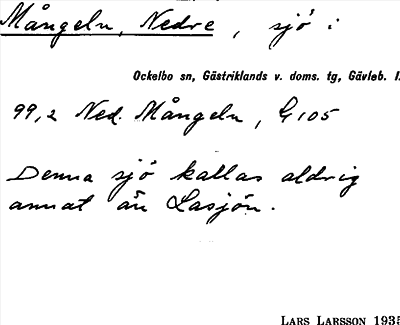 Mångeln, Nedre, sjö i
Ockelbo sn, Gästriklands v. doms. tg, Gävleb. l.
99,2 Ned. Mångeln, G 105
Denna sjö kallas aldrig
annat än Lasjön.
LARS LARSSON 1935